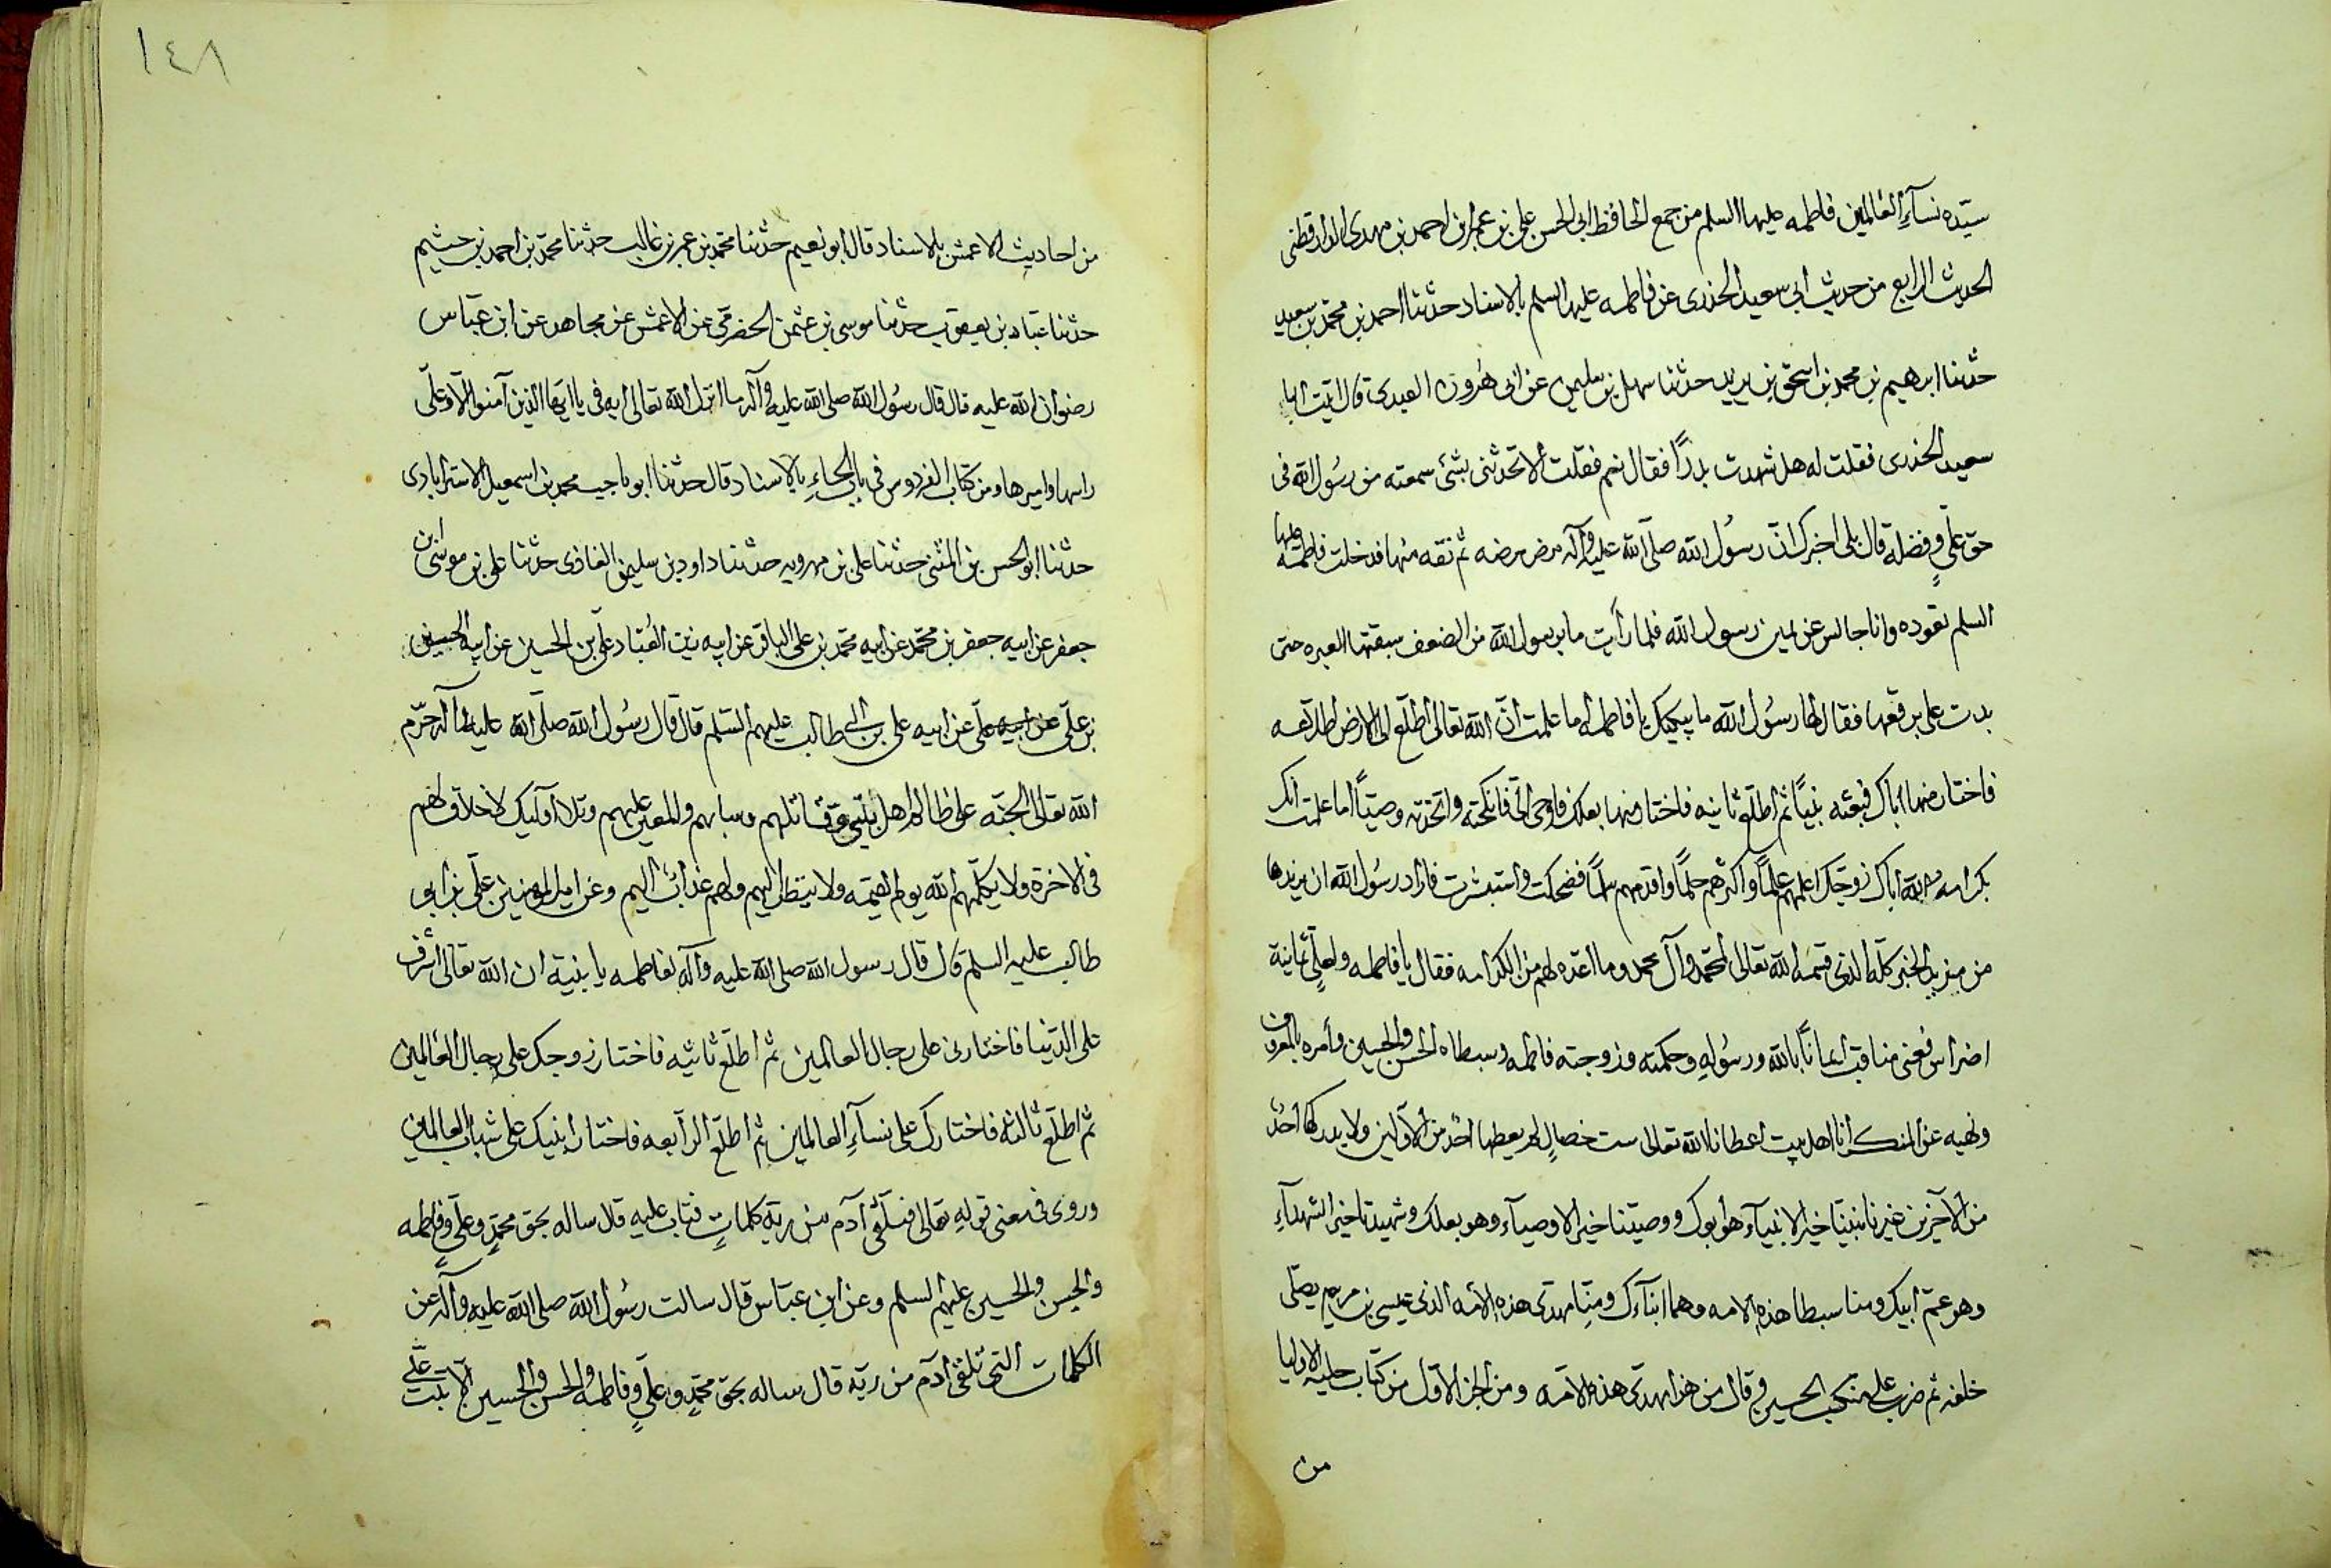 سيّده نسآءِ العالمين فاطمه عليها السلم من جمع الحافظ ابى الحسن على بن عمر بن احمد بن مهدى الدارقطنى
الحديث الرابع من حديث ابى سعيد الخدرى عن فاطمه عليها السلم بالاسناد حدّثنا احمد بن محمّد بن سعيد
حدّثنا ابرهيم بن محمد بن اسحق بن يريد حدّثنا سهل بن سليمن عن ابى هُرون العبدى قال اتيت ابا
سعيد الخدرى فقلت له هل شهدت بدرًا فقال نعم فقلت ألا تحدّثنى بشئ سمعته من رسُول الله فى
حق علىٍّ وفضله قال بلى اخبرك انّ رسُول الله صلّى الله عليه وآله مرض مرضه ثم نقه منها فدخلت فاطمه عليها
السلم تعوده وانا جالس عن يمين رسول الله فلما رأت ما برسول الله من الضعف سبقتها العبره حتى
بدت على فقال لها رسُول الله ما يبكيك يا فاطمه اما علمت انّ الله تعالى اطلّع الى الارض اطلاعه
فاختار منها اباك فبعثه نبيًا ثم اطلّع ثانيه فاختار منها بعلك فاوحى الىّ فانكحته واتخذته وصيّاً اما علمت انك
بكرامه الله اياك زوّجك اعلمهم علمًا واكثرهم حلمًا واقدمهم سلمًا فضحكت واستبشرت فاراد رسُول الله ان يزيدها
من مزيد الخير كلّه الذى قسمه الله تعالى لمحمّد وآل محمد وما اعدّه لهم من الكرامه فقال يا فاطمه ولعلىٍّ ثمانية
اضراس يعنى مناقب ايمانًا بالله ورسُوله وحكمته وزوجته فاطمه وسبطاه الحسن والحسين وأمره بالمعروف
ونهيه عن المنكر انا اهل بيت اعطانا الله تعالى ست خصالٍ لم يعطها احدٌ من الأوّلين ولا يدركها احدٌ
من الآخرين غيرنا نبيّنا خير الانبيآء هو ابوك ووصيّنا خير الاوصيآء وهو بعلك وشهيدنا خير الشهدآءِ
وهو عمّ ابيك ومنا سبطا هذه الامه وهما ابنآءك ومنّا مهدىّ هذه الامّه الذى عيسى بن مريم يصلّى
خلفه ثم ضرب على منكب الحسين وقال من هذا مهدىّ هذه الامّه ومن الجز الاوّل من كتاب حلية الاوليا
من
١٤٨
من احاديث الاعمش بالاسناد قال ابو نعيم حدّثنا محمّد بن عمر بن غالب حدّثنا محمّد بن احمد بن خيثم
حدّثنا عبّاد بن يعقوب حدّثنا موسى بن عثمن الحضرمى عن الاعمش عن مجاهد عن ابن عبّاس
رضوان الله عليه قال قال رسُول الله صلى الله عليه وآله ما انزل الله تعالى ايه فى يا ايّها الذين آمنوا الّا وعلىّ
راسها واميرها ومن كتاب الفردوس فى باب الحاءِ بالاسناد قال حدّثنا محمد بن اسمعيل الاسترابادى
حدّثنا ابو الحسن بن المثنى حدّثنا على بن مهرويه حدّثنا داود بن سليمن الغازى حدّثنا على بن موسى بن
جعفر عن ابيه جعفر بن محمّد عن ابيه محمّد بن على الباقر عن ابيه زين العُبّاد علىّ بن الحسين عن ابيه الحسين
بن علىّ عن ابيه علىّ عن ابيه على بن ابى طالب عليهم السّلم قال قال رسُول الله صلّى الله عليه وآله حرّم
الله تعالى الجنّه على ظالم اهل بيتى وقاتلهم وسابهم والمعين عليهم وتلا اوليك لا خلاق لهم
فى الاخرة ولا يكلّمهم الله يوم القيمه ولا ينظر اليهم ولهم عذابٌ اليم وعن امير المؤمنين علىّ بن ابو
طالب عليه السلم قال قال رسول الله صلى الله عليه وآله لفاطمه يا بنية ان الله تعالى اشرف
على الدّنيا فاختارنى على رجال العالمين ثم اطلّع ثانيه فاختار زوجك على رجال العالمين
ثم اطلّع ثالثه فاختارك على نسآءِ العالمين ثم اطلّع الرآبعه فاختار ابنيك على شباب العالمين
وروى فى معنى قوله تعالى فتلقّى آدم من ربّه كلماتٍ فتاب عليه قال ساله بحق محمّدٍ وعلىٍّ وفاطمه
والحسن والحسين عليهم السلم وعن ابن عبّاس قال سالت رسُول الله صلى الله عليه وآله عن
الكلمات التى تلقّى آدم من ربّه قال ساله بحق محمّدٍ وعلىٍّ وفاطمه والحسن والحسين الّا تبت علىّ